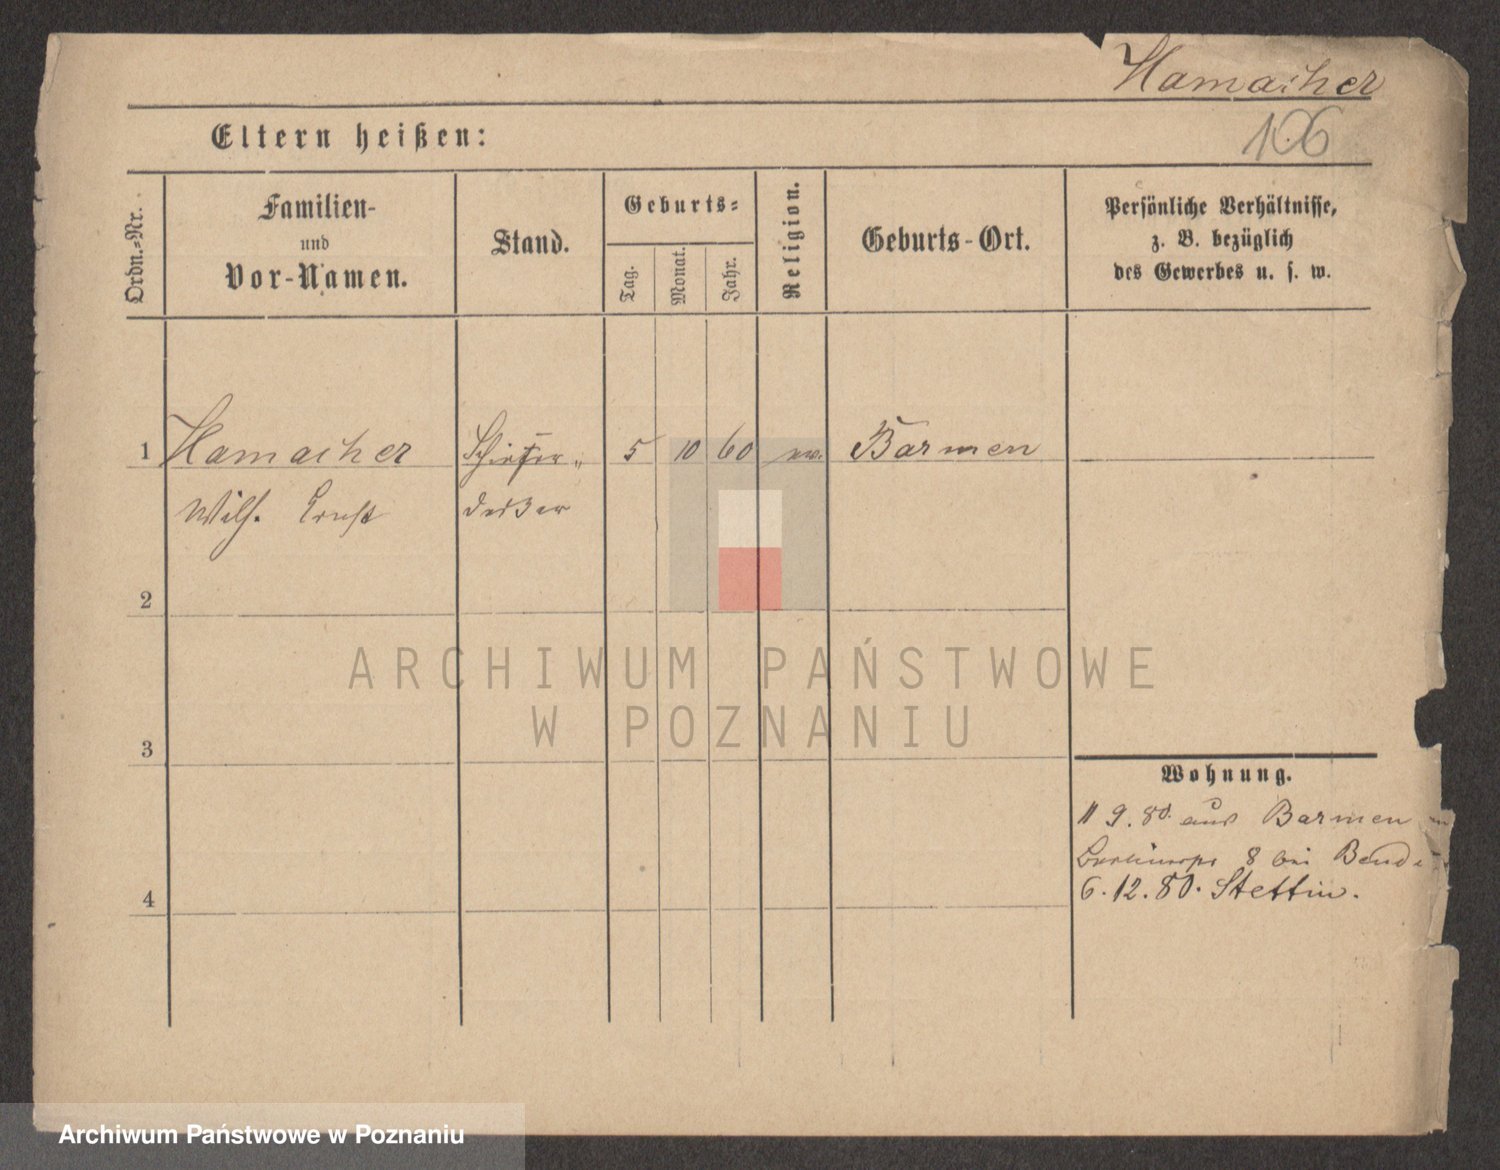 Hamacher
106
Eltern heißen:
Ordn.-Nr.
Familien-
und
Vor-Namen.
Stand.
Geburts-
Tag.
Monat.
Jahr.
Religion.
Geburts-Ort.
Persönliche Verhältnisse,
z. B. bezüglich
des Gewerbes u. s. w.
1 Hamacher Schiefer- 5 10 60 ev. Barmen
Wilh. Ernst decker
2
3
4
Wohnung.
11 9. 80. aus Barmen
8 bei
6. 12. 80. Stettin.
ARCHIWUM PAŃSTWOWE
W POZNANIU
Archiwum Państwowe w Poznaniu